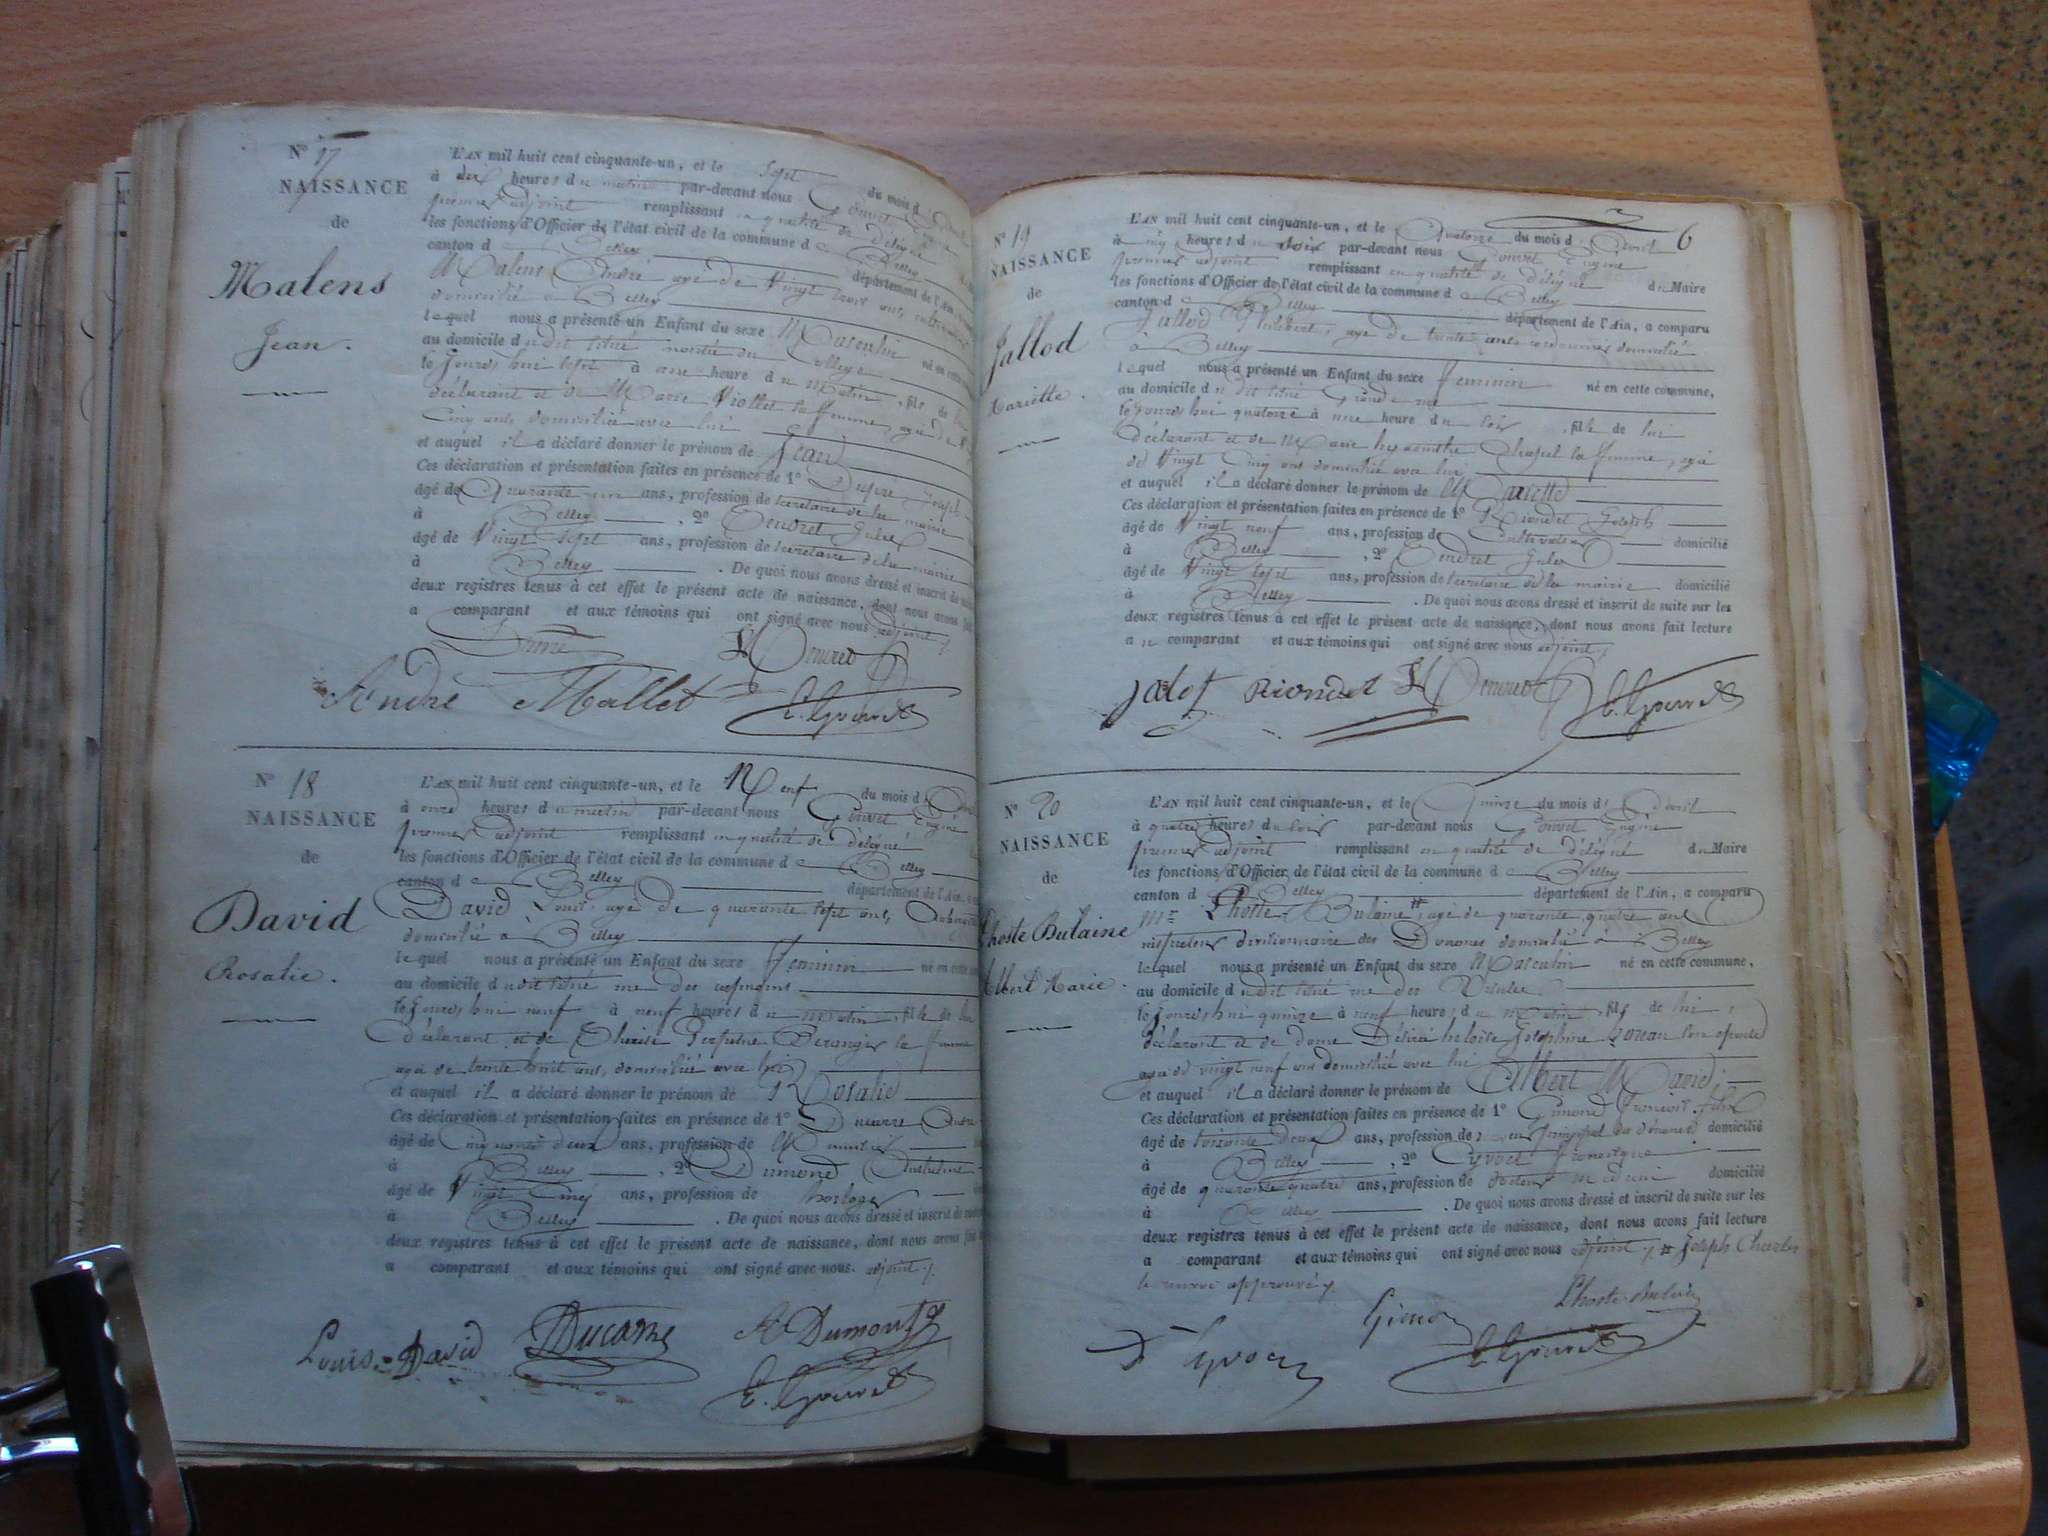 N° 17
NAISSANCE
de
Malens
Jean.
L'AN mil huit cent cinquante-un, et le sept du mois d
à dix heures du matin par-devant nous Gouvet
premier adjoint remplissant en qualité de délégué
les fonctions d'Officier de l'état civil de la commune de Belley
canton de Belley département de l'Ain,
Malens André agé de vingt trois ans, cultivateur
domicilié à Belley
lequel nous a présenté un Enfant du sexe Masculin né en cette
au domicile du dit situé montée du College
le jourd'hui sept à une heure du matin, fils de lui
déclarant et de Marie Viollet sa femme, agée de
cinq ans, domiciliée avec lui
et auquel il a déclaré donner le prénom de Jean
Ces déclaration et présentation faites en présence de 1° Dupré Joseph
âgé de Quarante-un ans, profession de secretaire de la mairie
à Belley, 2° Jules
âgé de Vingt sept ans, profession de secretaire de la mairie
à Belley. De quoi nous avons dressé et inscrit de suite
deux registres tenus à cet effet le présent acte de naissance, dont nous avons fait
a comparant et aux témoins qui ont signé avec nous adjoint
André Mallet E. Gouvet
N° 18
NAISSANCE
de
David
Rosalie.
L'AN mil huit cent cinquante-un, et le Neuf du mois d'Avril
à onze heures du matin par-devant nous Gouvet Eugène
premier adjoint remplissant en qualité de délégué
les fonctions d'Officier de l'état civil de la commune de Belley
canton de Belley département de l'Ain,
David Louis, agé de quarante sept ans,
domicilié à Belley
lequel nous a présenté un Enfant du sexe Feminin né en cette
au domicile du dit situé rue des
le jourd'hui neuf à neuf heures du matin, fille de lui
déclarant et de Beranger sa femme
agée de trente huit ans, domiciliée avec lui
et auquel il a déclaré donner le prénom de Rosalie
Ces déclaration et présentation faites en présence de 1°
âgé de Cinquante deux ans, profession de
à Belley, 2° Dumond Anthelme
âgé de Vingt Cinq ans, profession de horloger
à Belley. De quoi nous avons dressé et inscrit de suite
deux registres tenus à cet effet le présent acte de naissance, dont nous avons fait
a comparant et aux témoins qui ont signé avec nous. adjoint
Louis David A Dumont
E. Gouvet
6
N° 19
NAISSANCE
de
Jallod
Mariette.
L'AN mil huit cent cinquante-un, et le Quatorze du mois d'Avril
à cinq heures du soir par-devant nous Gouvet Eugène
premier adjoint remplissant en qualité de délégué du Maire
les fonctions d'Officier de l'état civil de la commune de Belley
canton de Belley département de l'Ain, a comparu
Jallod Philibert, agé de trente ans cordonnier domicilié
à Belley
lequel nous a présenté un Enfant du sexe Feminin né en cette commune,
au domicile du dit situé Grande rue
le jourd'hui quatorze à une heure du soir, fille de lui
déclarant et de Marie Chapel sa femme, agée
de Vingt Cinq ans domiciliée avec lui
et auquel il a déclaré donner le prénom de Mariette
Ces déclaration et présentation faites en présence de 1° Riondet Joseph
âgé de Vingt neuf ans, profession de Cultivateur domicilié
à Belley, 2° Jules
âgé de Vingt sept ans, profession de secretaire de la mairie domicilié
à Belley. De quoi nous avons dressé et inscrit de suite sur les
deux registres tenus à cet effet le présent acte de naissance, dont nous avons fait lecture
au comparant et aux témoins qui ont signé avec nous adjoint
jalot Riondet E. Gouvet
N° 20
NAISSANCE
de
Lhoste Bulaine
Albert Marie.
L'AN mil huit cent cinquante-un, et le Quinze du mois d'Avril
à quatre heures du soir par-devant nous Gouvet Eugène
premier adjoint remplissant en qualité de délégué du Maire
les fonctions d'Officier de l'état civil de la commune de Belley
canton de Belley département de l'Ain, a comparu
Mr Lhoste Bulaine, agé de quarante quatre ans
divisionnaire des Douanes domicilié à Belley
lequel nous a présenté un Enfant du sexe Masculin né en cette commune,
au domicile du dit situé rue des
le jourd'hui quinze à neuf heures du matin, fils de lui,
déclarant et de dame Désirée heloïse Josephine son épouse
agée de vingt neuf ans domiciliée avec lui
et auquel il a déclaré donner le prénom de Albert Marie
Ces déclaration et présentation faites en présence de 1° François
âgé de soixante deux ans, profession de principal des Douanes domicilié
à Belley, 2°
âgé de quarante quatre ans, profession de docteur medecin domicilié
à Belley. De quoi nous avons dressé et inscrit de suite sur les
deux registres tenus à cet effet le présent acte de naissance, dont nous avons fait lecture
a comparant et aux témoins qui ont signé avec nous adjoint # Joseph Charles
le renvoi approuvé
Lhoste Bulaine
E. Gouvet